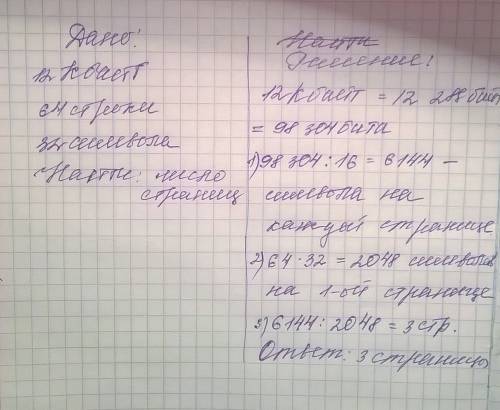 Дано:
12 Кбайт
64 строки
32 символа
Найти: число
страниц
Найти
Решение:
12 Кбайт = 12 288 байт
= 98 304 бита
1) 98 304 : 16 = 6144 –
символа на
каждой странице
2) 64 · 32 = 2048 символов
на 1-ой странице
3) 6144 : 2048 = 3 стр.
Ответ: 3 страницы